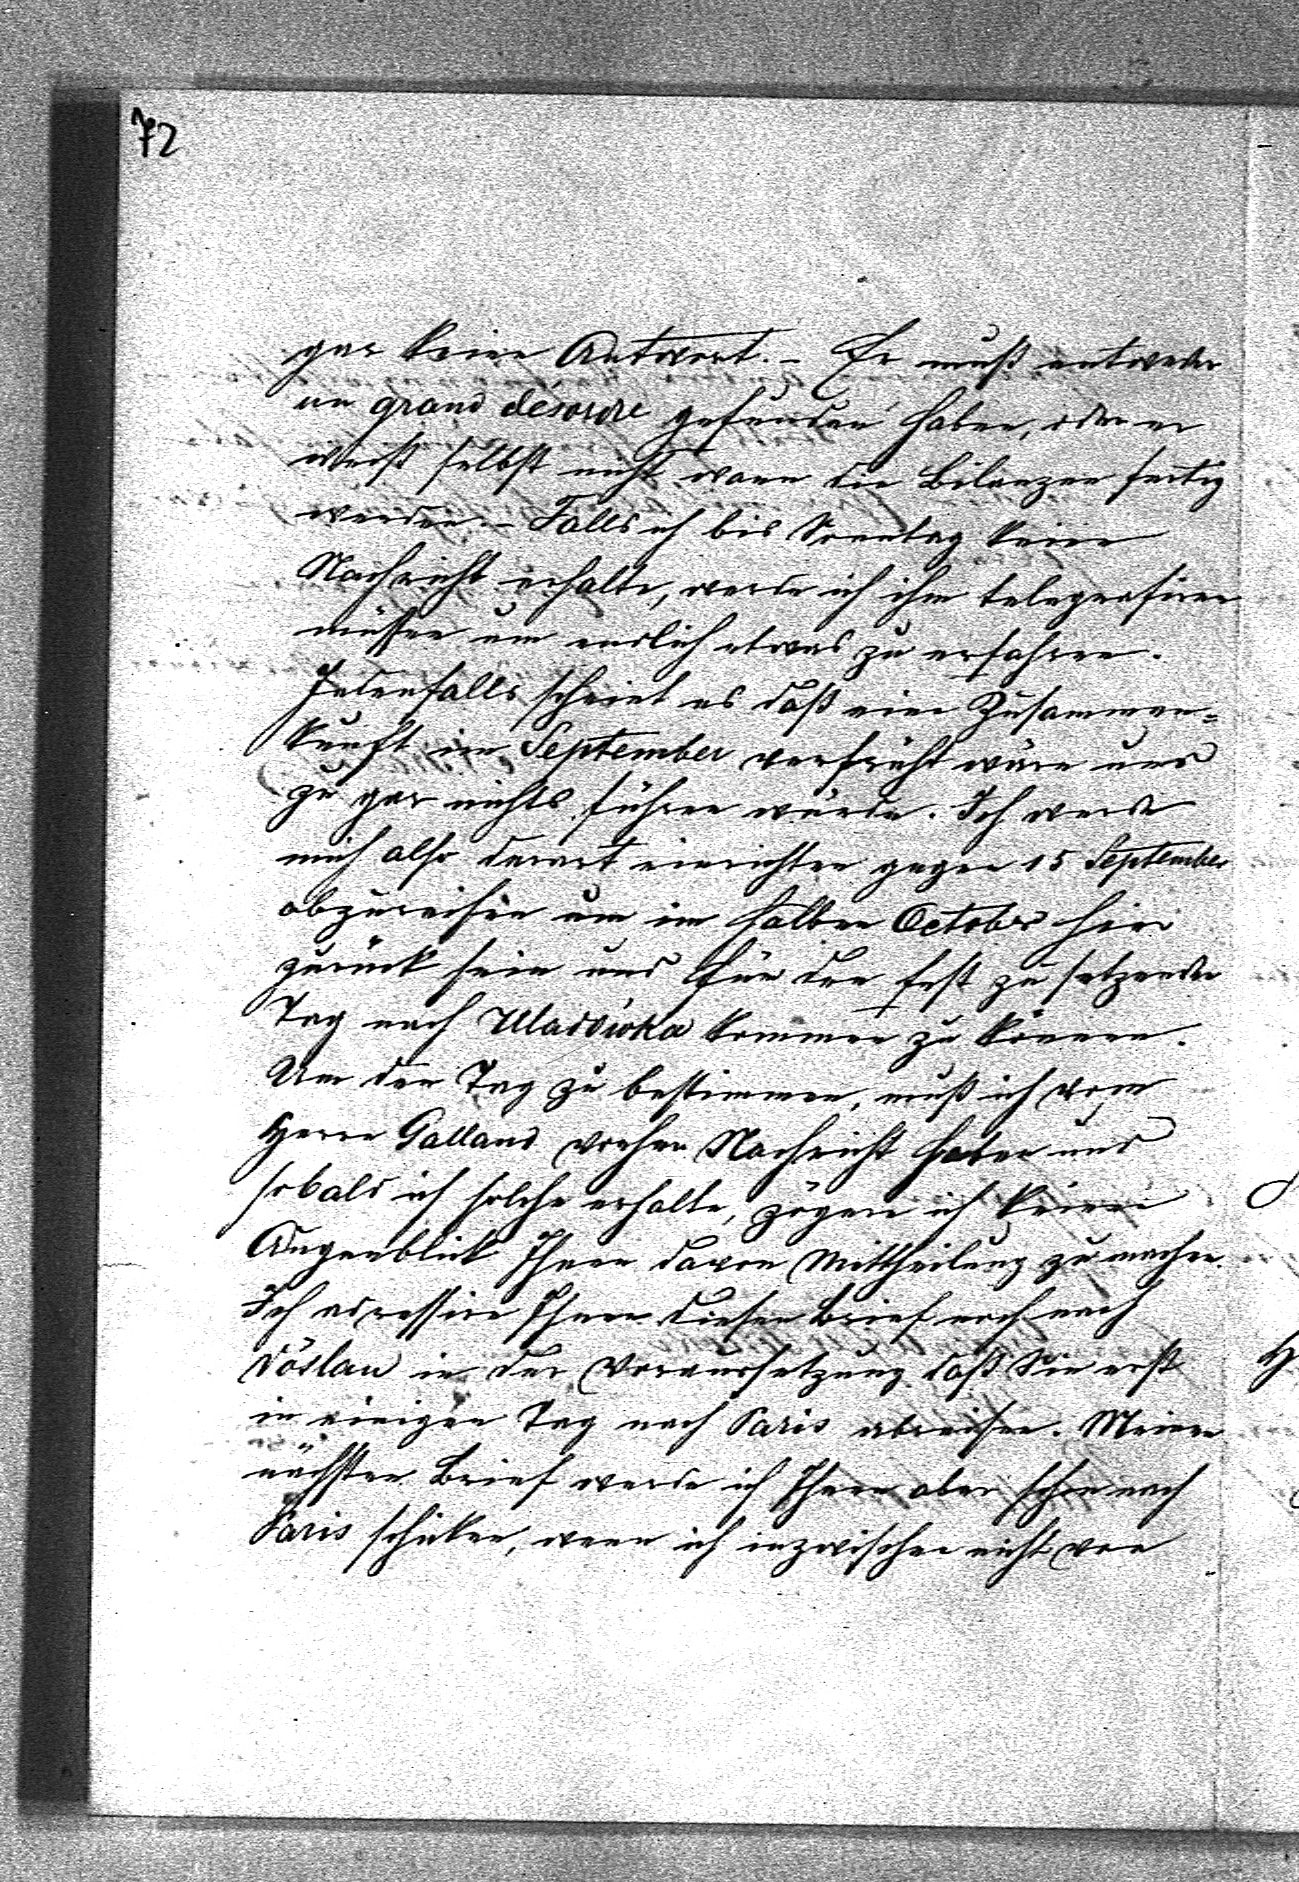 72
gar keine Antwort. – Er muß entweder
un grand desordre gefunden haben, oder er
weiß selbst nicht wann die Bilanzen fertig
werden. – Falls ich bis Sonntag keine
Nachricht erhalte, werde ich ihm telegrafiren
müssen um endlich etwas zu erfahren.
Jedenfalls scheint es daß eine Zusammen=
kunft im September verfrüht wäre und
zu gar nichts führen würde. Ich werde
mich also derart einrichten gegen 15 September
abzureisen um im halben October hier
zurück sein und für den fest zu setzenden
Tag nach Uladówka kommen zu können.
Um den Tag zu bestimmen, muß ich vom
Herrn Galland vorher Nachricht haben und
sobald ich solche erhalte, zögere ich keinen
Augenblick Ihnen davon Mittheilung zu machen.
Ich adressire Ihnen diesen Brief noch nach
Vöslau in der Voraussetzung daß Sie erst
in einigen Tag nach Paris abreisen. Meinen
nächsten Brief werde ich Ihnen aber schon nach
Paris schicken, wenn ich inzwischen nicht von